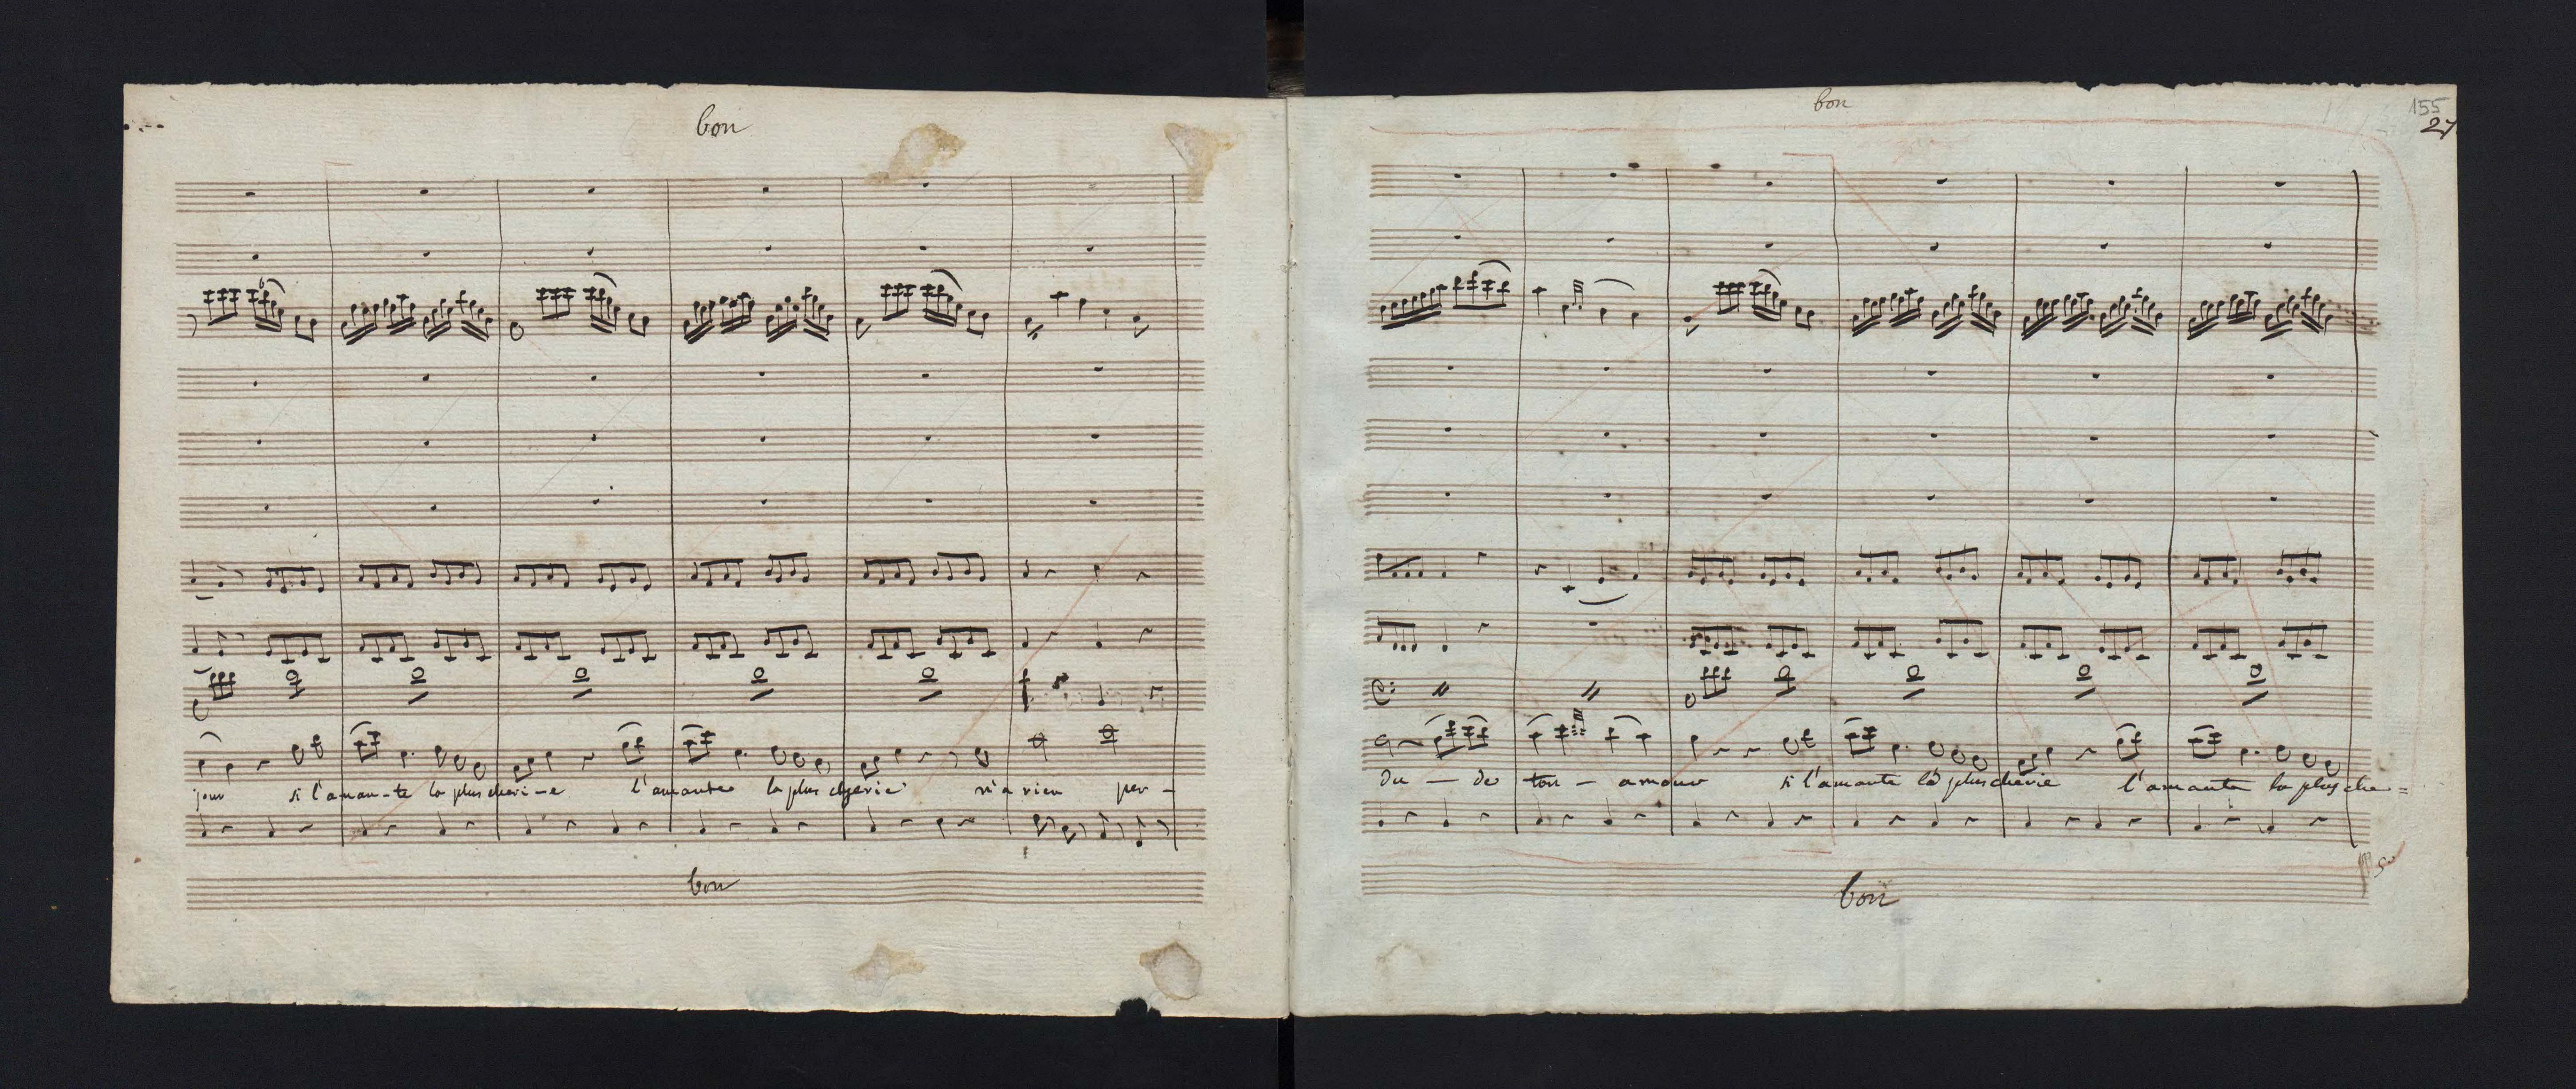 bon
jour si l'aman-te la plus cheri-e l'amante la plus cherie n'a rien per-
bon
bon
155
27
du - de ton - amour si l'amante la plus cherie l'amante la plus che=
bon